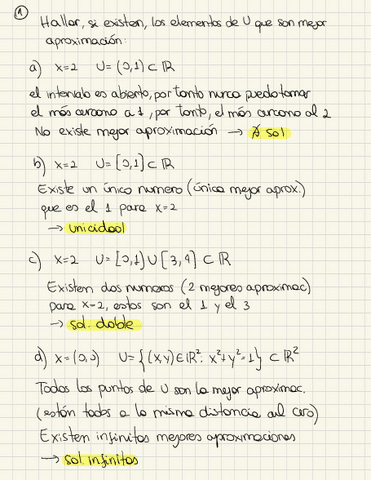 1
Hallar, si existen, los elementos de U que son mejor
aproximación:
a) x=2 U=(0,1)⊂ℝ
el intervalo es abierto, por tanto nunca puedo tomar
el más cercano a 1, por tanto, el más cercano al 2
No existe mejor aproximación → ∄ sol
b) x=2 U=[0,1]⊂ℝ
Existe un único numero (única mejor aprox.)
que es el 1 para x=2
→ unicidad
c) x=2 U=[0,1]∪[3,4]⊂ℝ
Existen dos numeros (2 mejores aproximac)
para x=2, estos son el 1 y el 3
→ sol. doble
d) x=(0,0) U={(x,y)∈ℝ²: x²+y²=1}⊂ℝ²
Todos los puntos de U son la mejor aproximac.
(están todos a la misma distancia del cero)
Existen infinitas mejores aproximaciones
→ sol infinitas